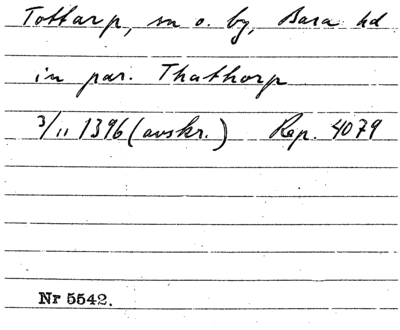 Tottarp, sn o. by, Bara hd
in par. Thathorp
3/11 1396 (avskr.) Rep. 4079
Nr 5542.